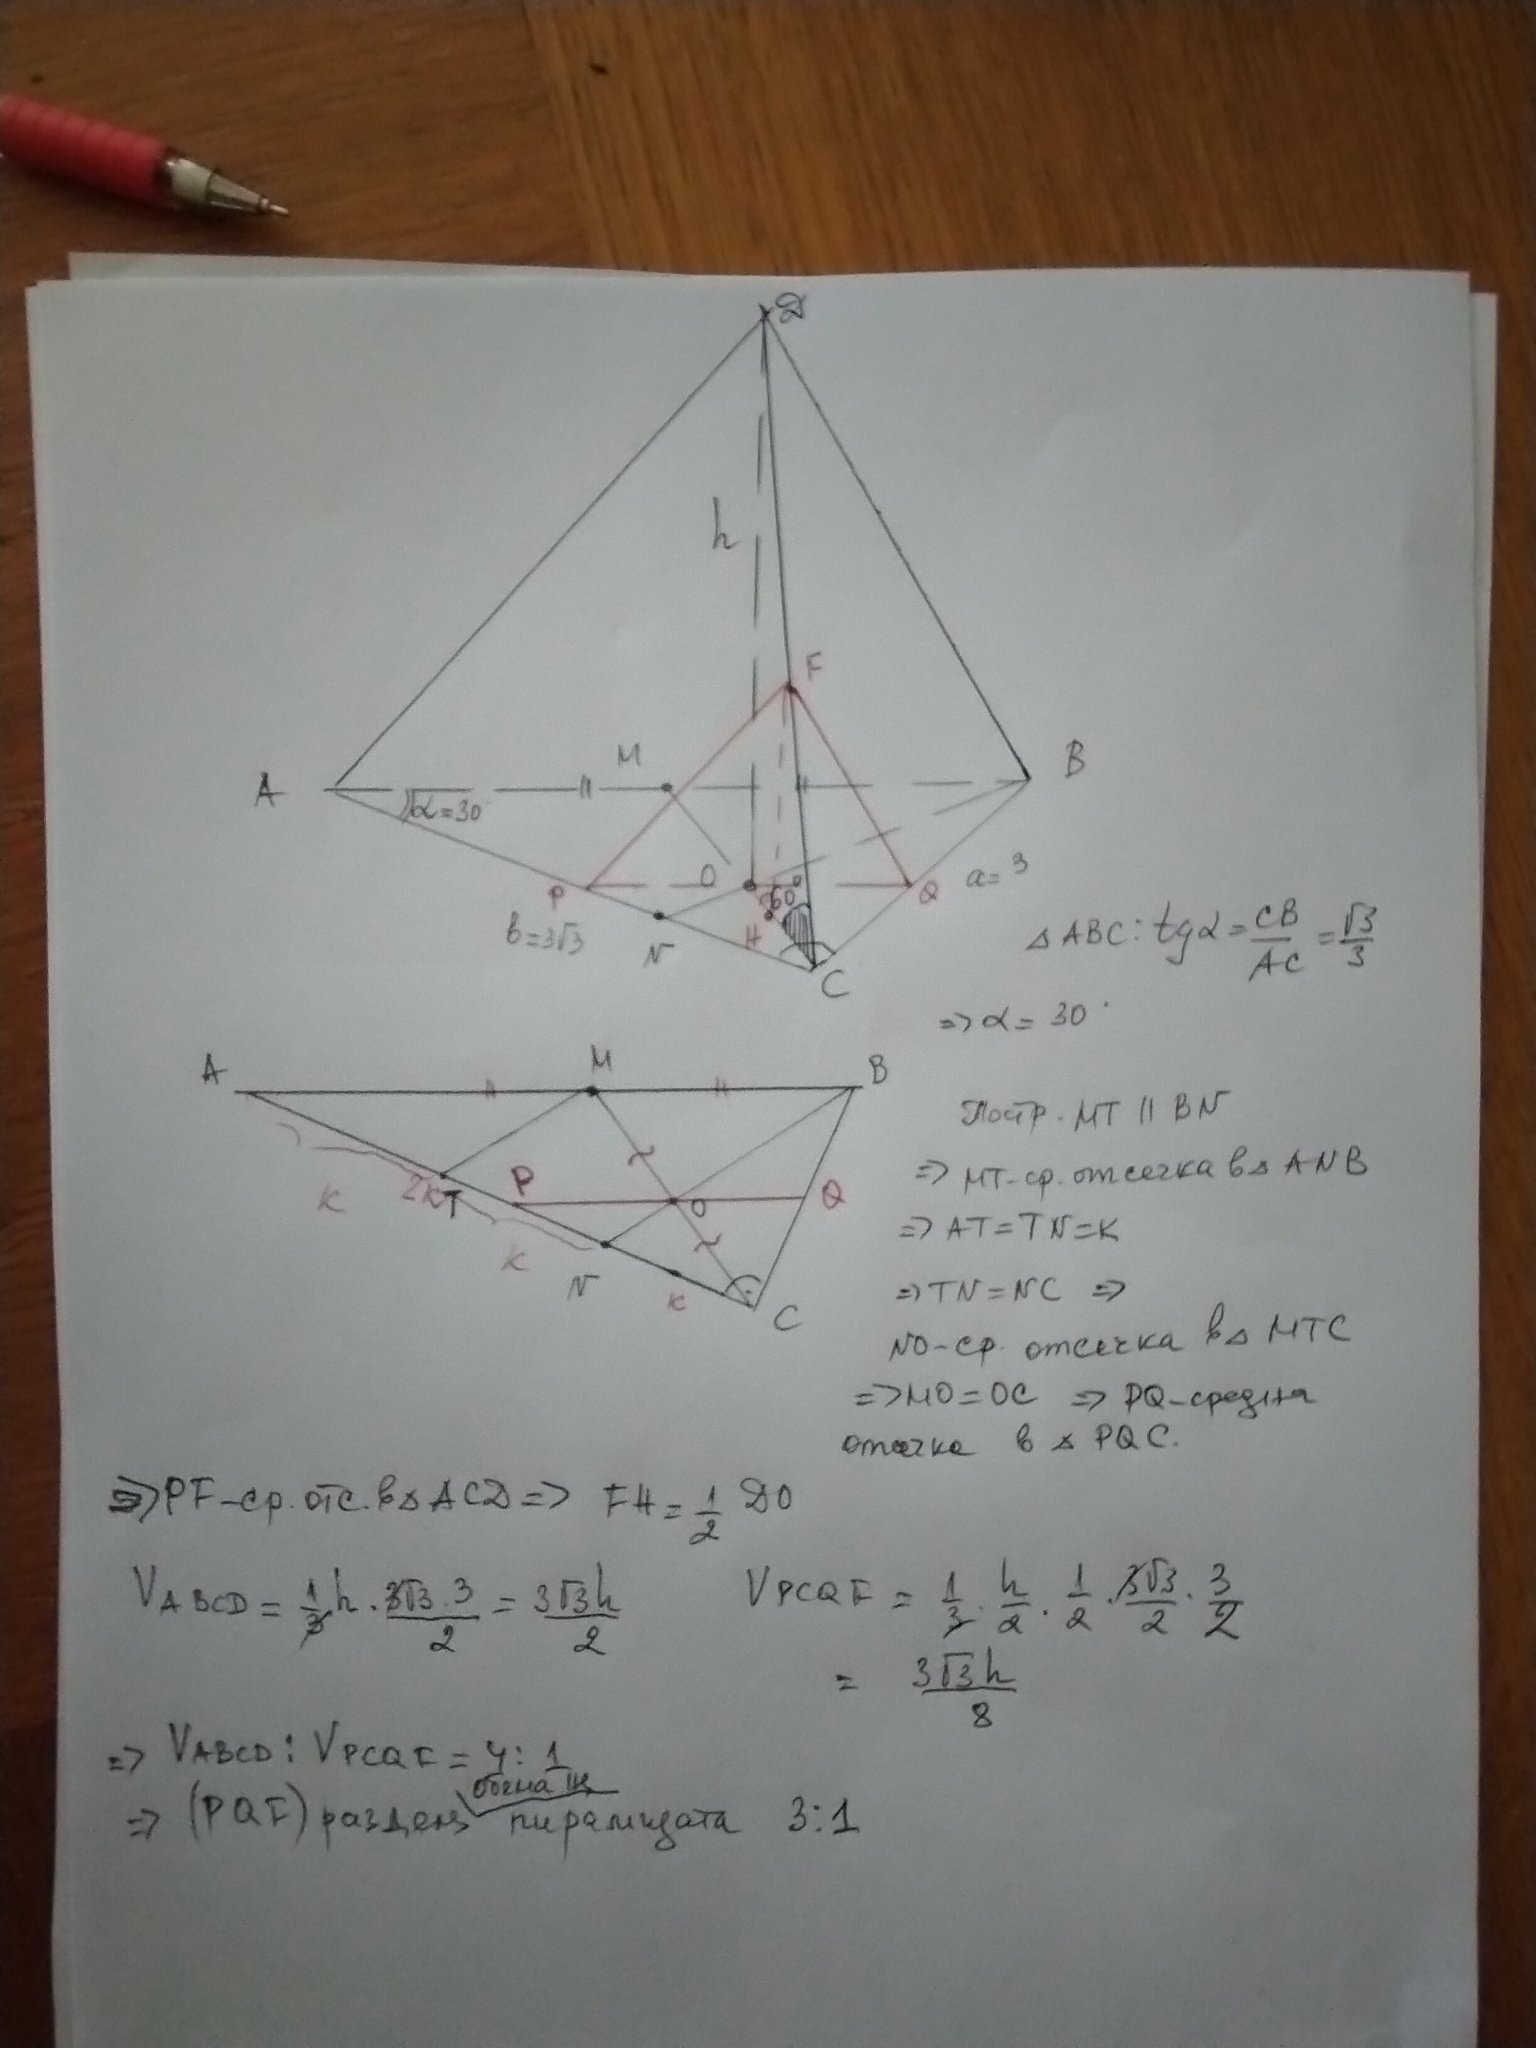 D
h
F
A
M
B
α=30°
O
60°
P
Q
a=3
b=3√3
N
H
C
△ABC: tgα = CB/AC = √3/3
=> α = 30°
A
M
B
Постр. MT || BN
=> MT-ср. отсечка в △ ANB
P
Q
K
2K
T
O
=> AT = TN = K
K
N
K
C
=> TN = NC =>
NO-ср. отсечка в △ MTC
=> MO = OC => PQ-средна
отсечка в △ PQC.
=> PF-ср. отс. в △ ACD => FH = 1/2 DO
V ABCD = 1/3 h · 3√3 · 3/2 = 3√3h/2
V PCQF = 1/3 · h/2 · 1/2 · 3√3/2 · 3/2
= 3√3 h/8
=> V ABCD : V PCQF = 4 : 1
=> (PQF) разделя пирамидата 3:1